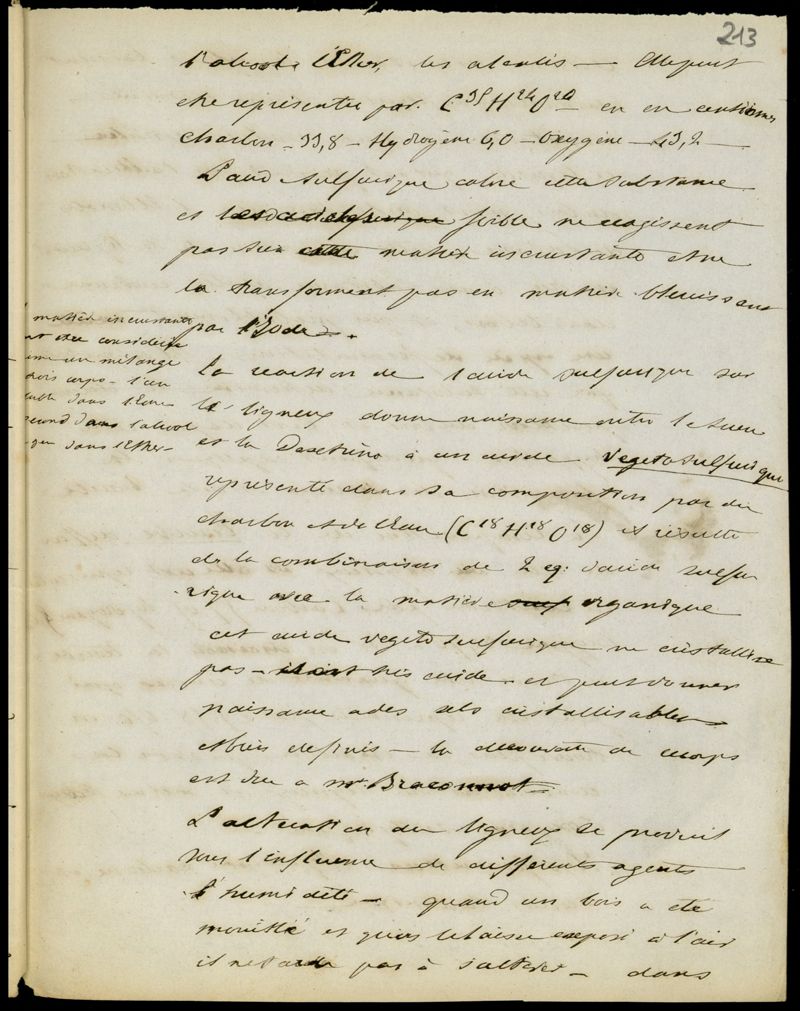 213
l'alcool, l'Ether, les alcalis — Elle peut
etre representée par C35 H24 O20 — en en centiemes
charbon — 53,8 — Hydrogène 6,0 — Oxygène — 43,2 —
L'acide sulfurique colore cette substance
et faible ne reagissent
pas sur cette matière incrustante et ne
la transforment pas en matière bleuissant
par l'Iode.
matière incrustante
etre considerée
un mélange
trois corps — l'un
dans l'Eau
second dans l'alcool
dans l'Ether —
la reaction de l'acide sulfurique sur
le ligneux donne naissance outre le sucre
et la Dextrine à un acide vegeto sulfurique
représenté dans sa composition par du
charbon et de l'Eau (C18 H18 O18) et résulte
de la combinaison de 2 eq: d'acide sulfu
rique avec la matière organique
cet acide vegeto sulfurique ne cristallise
pas — il est très acide. et peut donner
naissance a des sels cristallisables
et bien definis — la decouverte de ce corps
est due a Mr Braconnot —
L'alteration du ligneux se produit
sous l'influence de différents agents
l'humidité — quand un bois a eté
mouillé et qu'on le laisse exposé à l'air
il ne tarde pas à s'alterer — dans